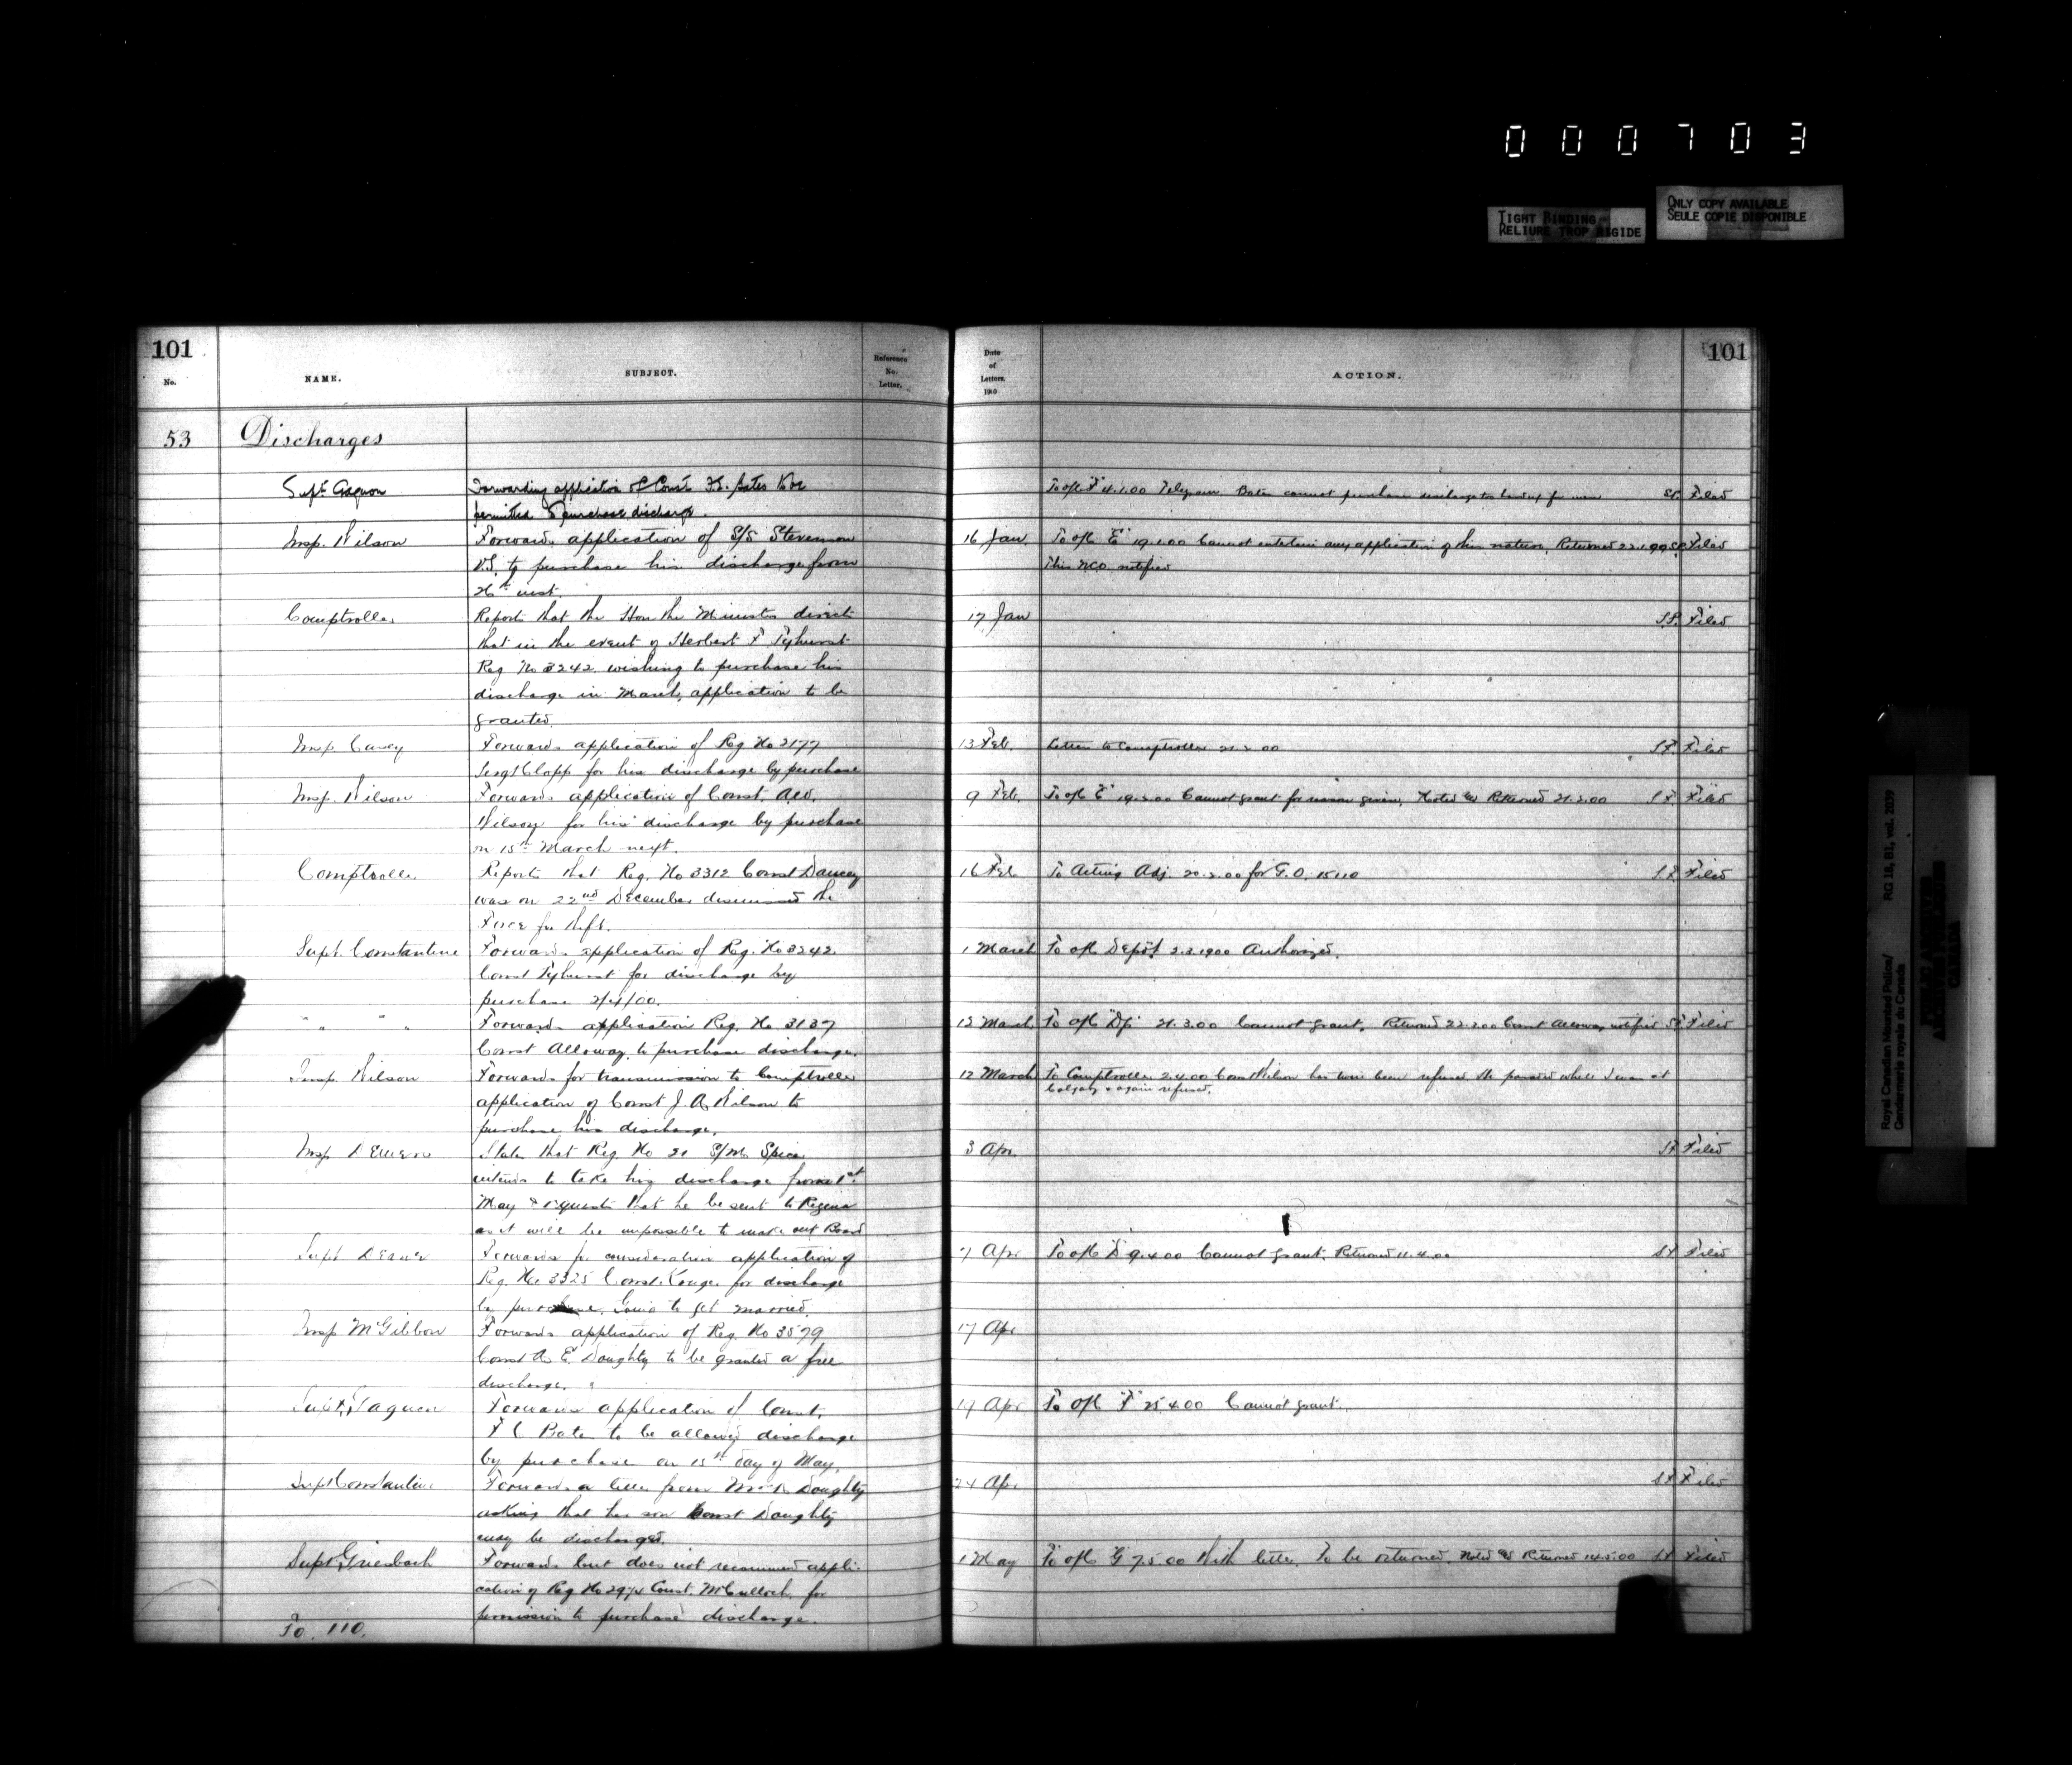 000703
TIGHT BINDING
RELIURE TROP RIGIDE
ONLY COPY AVAILABLE
SEULE COPIE DISPONIBLE
101
No.
NAME.
SUBJECT.
Reference
No.
Letter.
Date
of
Letters.
190
ACTION.
101
53 Discharges
Supt Gagnon Forwarding application of Const F.C. Bates to be
permitted to purchase discharge.
To ofc "F" 4.1.00 Telegram Bates cannot purchase discharge Filed
Insp. Wilson Forwards application of S/S Stevenson 16 Jan To ofc "E" 19.1.00 Cannot entertain any application of this nature. Returned Filed
V.S. to purchase his discharge from This NCO notified
inst.
Comptroller Reports that the Hon the Minister directs 17 Jan Filed
that in the event of Herbert F Tyhurst
Reg No 3242 wishing to purchase his
discharge in March, application to be
granted.
Insp. Casey Forwards application of Reg No 2177 13 Feb. Letter to Comptroller 21.2.00 Filed
Sergt Clopp for his discharge by purchase
Insp. Wilson Forwards application of Const. 9 Feb. To ofc "E" 19.2.00 Cannot grant for reason given. Noted Returned 21.2.00 Filed
Wilson for his discharge by purchase
on 15th March next.
Comptroller Reports that Reg. No 3312 Const Dancey 16 Feb. To Acting Adj. 20.2.00 for G.O. 15110 Filed
was on 22nd December dismissed the
Force for theft.
Supt. Constantine Forwards application of Reg. No 3242 1 March To ofc Depôt 2.3.1900 Authorized.
Const Tyhurst for discharge by
purchase 2/4/00.
" " Forwards application Reg. No 3137 March To ofc "Dep" 21.3.00 Cannot grant. Returned Const Alloway notified Filed
Const Alloway to purchase discharge.
Insp. Wilson Forwards for transmission to Comptroller 12 March To Comptroller 2.4.00 Const Wilson has twice been refused while I was at
Calgary & again refused.
application of Const J. A. Wilson to
purchase his discharge.
Insp Demers States that Reg No 21 S/M Spicer 3 Apr. Filed
intends to take his discharge from 1st
May & requests that he be sent to Regina
as it will be impossible to make out Board
Supt Deane Forwards for consideration application of 7 Apr To ofc "D" 9.4.00 Cannot grant. Returned 11.4.00 Filed
Reg. No 3325 Const. for discharge
by purchase. Going to get married.
Insp McGibbon Forwards application of Reg. No 3579 17 Apr
Const A. E. Doughty to be granted a free
discharge.
Supt. Gagnon Forwards application of Const. Apr. To ofc "F" 25.4.00 Cannot grant.
F C Bates to be allowed discharge
by purchase on 15th day of May.
Supt Constantine Forwards a letter from Doughty 24 Apr. Filed
asking that his son Const Doughty
may be discharged.
Supt. Griesbach Forwards but does not recommend appli- 1 May To ofc "G" 7.5.00 With letter. To be returned. Noted Returned 14.5.00 Filed
cation of Reg No 2974 Const. McCulloch for
permission to purchase discharge.
To 110.
Royal Canadian Mounted Police/ RG 18, B1, vol. 2039
Gendarmerie royale du Canada
PUBLIC ARCHIVES
ARCHIVES PUBLIQUES
CANADA